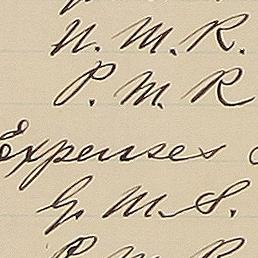 N. M. R.
P. M. R
Expenses
G. M. S.
P. M. R